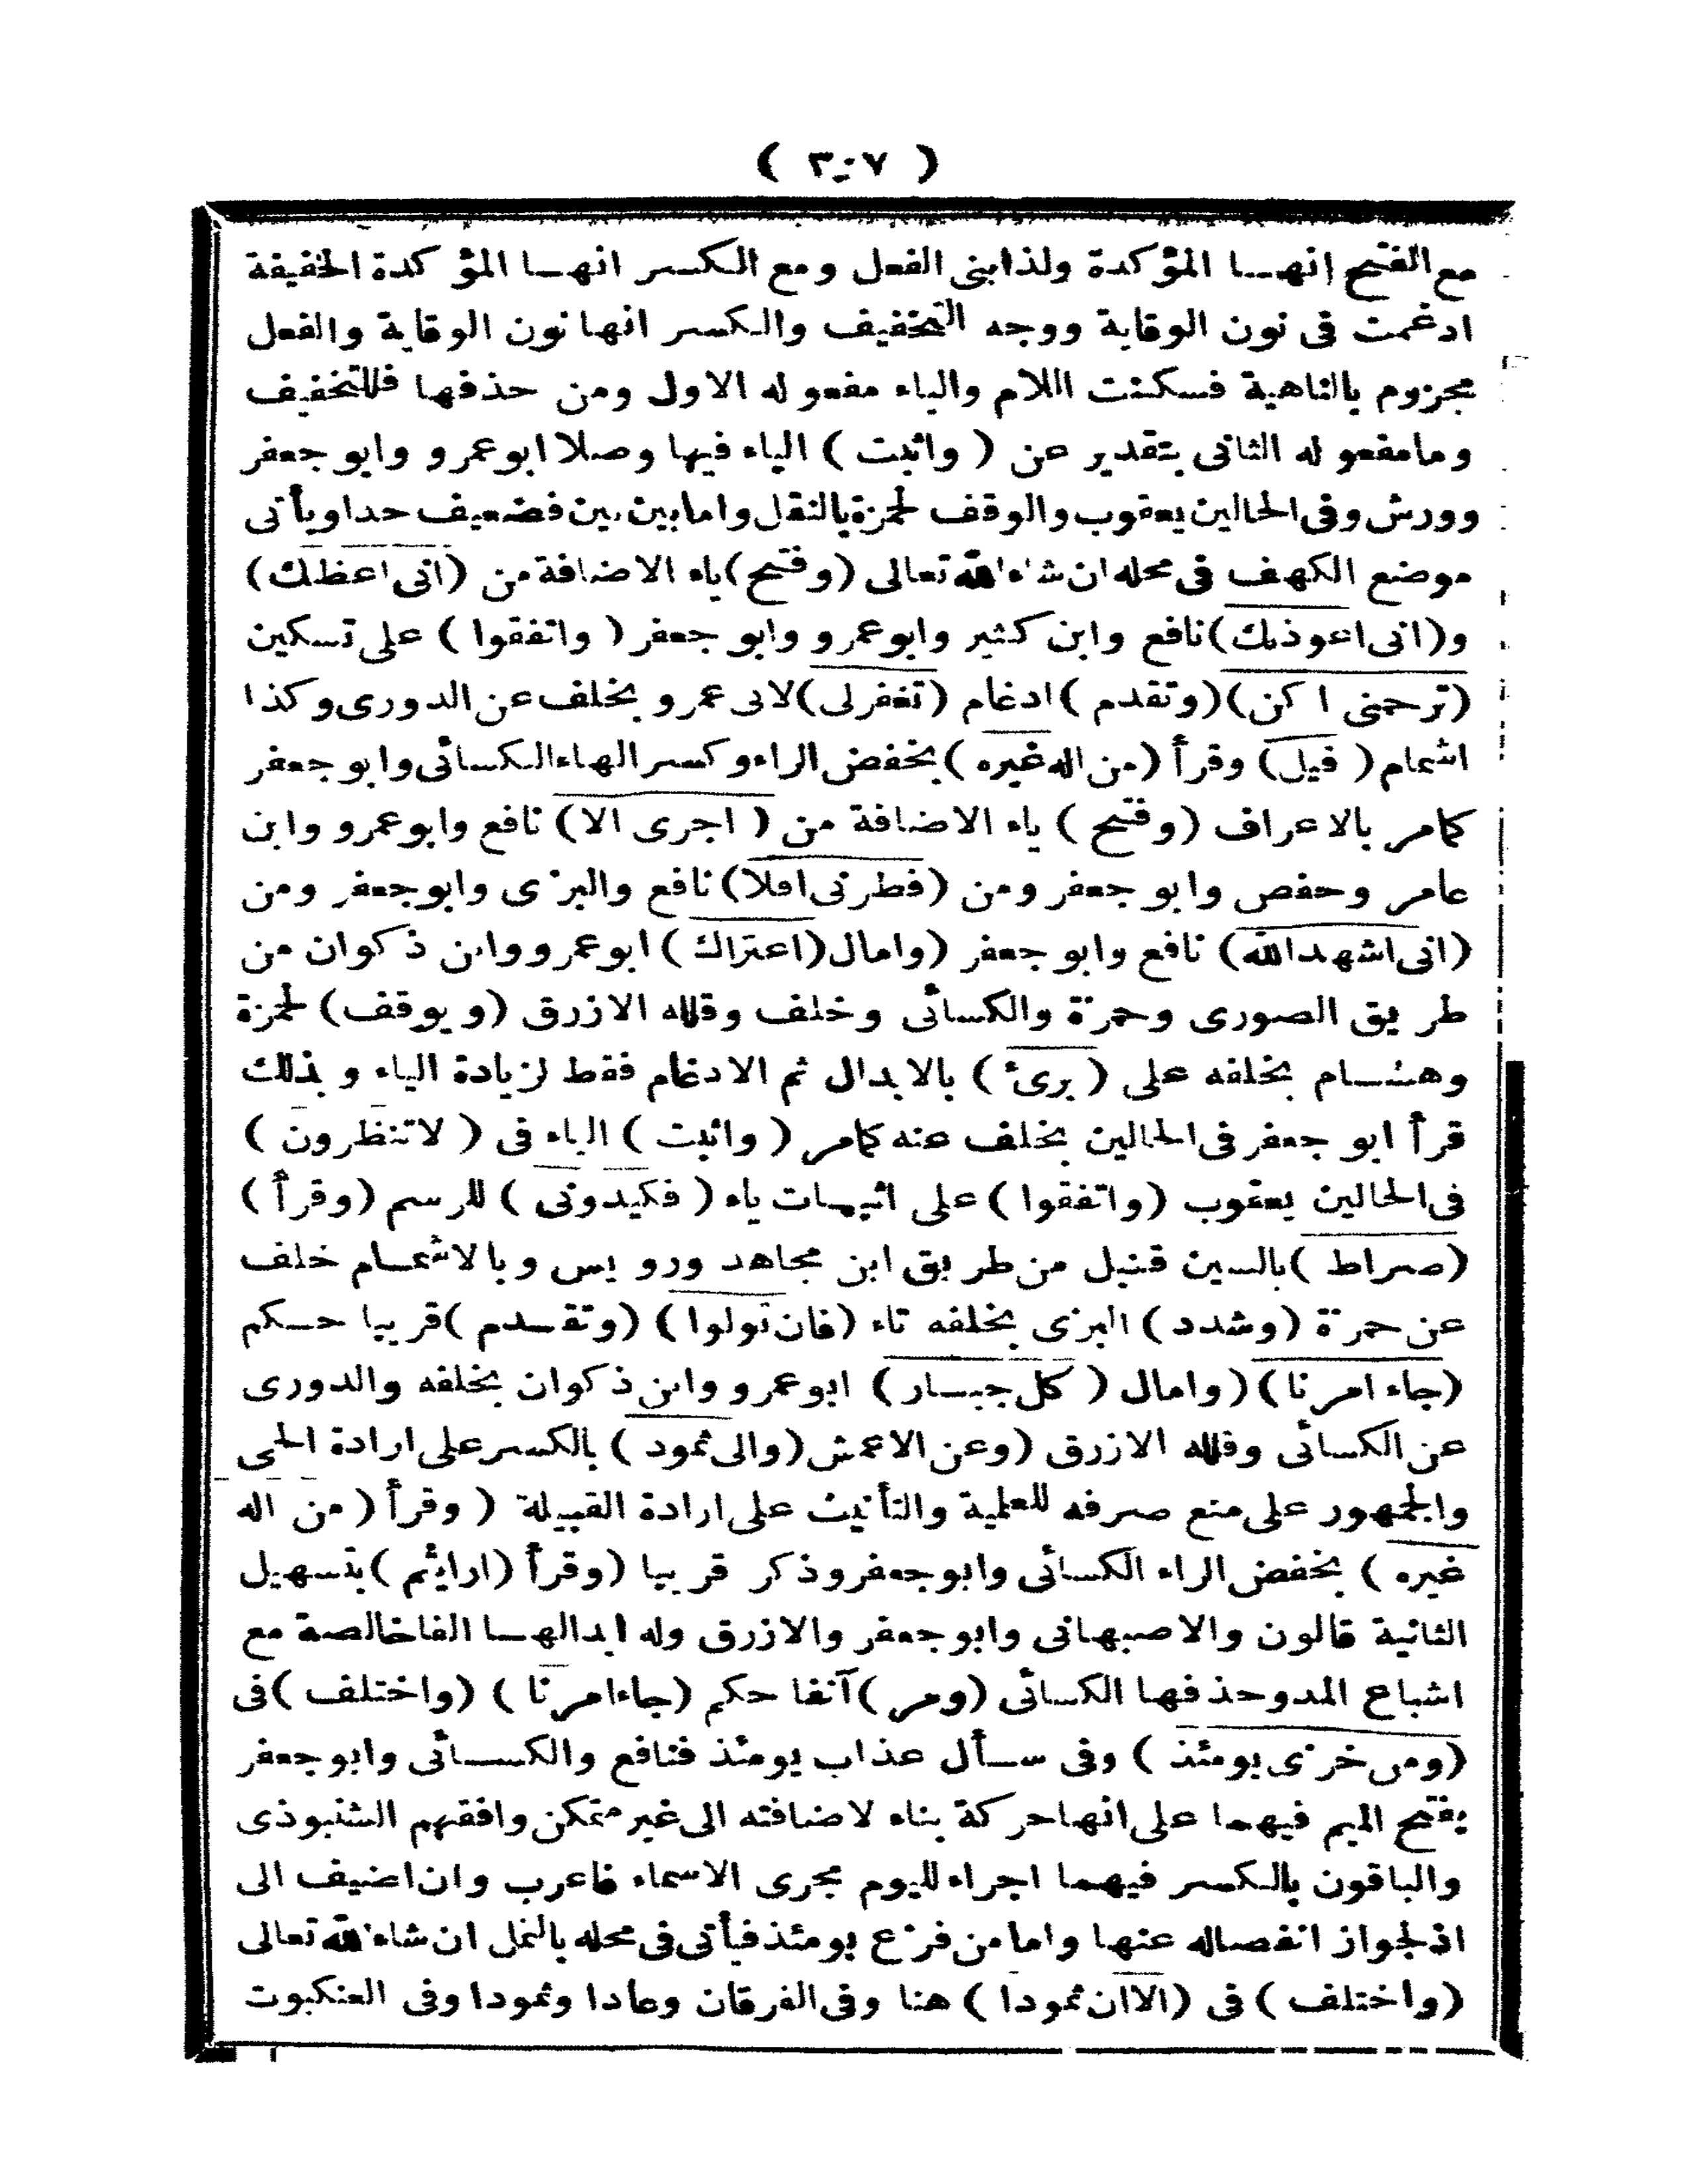 ( ٣٠٧ )
مع الفتح انهـا المؤكدة ولذا بنى الفعل ومع الكسر انهـا المؤكدة الخفيفة
ادغمت فى نون الوقاية ووجه التخفيف والكسر انها نون الوقاية والفعل
مجزوم بالناهية فسكنت اللام والياء مفعوله الاول ومن حذفها فللتخفيف
وما مفعوله الثانى بتقدير عن (واثبت) الياء فيها وصلا ابو عمرو وابو جعفر
وورش وفى الحالين يعقوب والوقف لحمزة بالنقل واما بين بين فضعيف جدا ويأتى
موضع الكهف فى محله ان شاء الله تعالى (وفتح) ياء الاضافة من (انى اعظك)
و(انى اعوذبك) نافع وابن كثير وابو عمرو وابو جعفر (واتفقوا) على تسكين
(ترحمنى اكن) (وتقدم) ادغام (تغفرلى) لابى عمرو بخلف عن الدورى وكذا
اشمام (قيل) وقرأ (من اله غيره) بخفض الراء وكسر الهاء الكسائى وابو جعفر
كمامر بالاعراف (وفتح) ياء الاضافة من (اجرى الا) نافع وابو عمرو وابن
عامر وحفص وابو جعفر ومن (فطرنى افلا) نافع والبزى وابو جعفر ومن
(انى اشهد الله) نافع وابو جعفر (وامال (اعتراك) ابو عمرو وابن ذكوان من
طريق الصورى وحمزة والكسائى وخلف وقلله الازرق (ويوقف) لحمزة
وهشـام بخلفه على (برىء) بالابدال ثم الادغام فقط لزيادة الياء وبذلك
قرأ ابو جعفر فى الحالين بخلف عنه كمامر (واثبت) الياء فى (لاتنظرون)
فى الحالين يعقوب (واتفقوا) على اثبـات ياء (فكيدونى) للرسم (وقرأ)
(صراط) بالسين قنبل من طريق ابن مجاهد ورويس وبالاشمـام خلف
عن حمزة (وشدد) البزى بخلفه تاء (فان تولوا) (وتقـدم) قريبا حـكم
(جاء امرنا) (وامال (كل جبـار) ابو عمرو وابن ذكوان بخلفه والدورى
عن الكسائى وقلله الازرق (وعن الاعمش (والى ثمود) بالكسر على ارادة الحى
والجمهور على منع صرفه للعلمية والتأنيث على ارادة القبيلة (وقرأ (من اله
غيره) بخفض الراء الكسائى وابو جعفر وذكر قريبا (وقرأ (ارايتم) بتسهيل
الثانية قالون والاصبهانى وابو جعفر والازرق وله ابدالهـا الفا خالصة مع
اشباع المد وحذفها الكسائى (ومر) آنفا حكم (جاء امرنا) (واختلف) فى
(ومن خزى يومئذ) وفى سـأل عذاب يومئذ فنافع والكسـائى وابو جعفر
بفتح الميم فيهما على انها حركة بناء لاضافته الى غير متمكن وافقهم الشنبوذى
والباقون بالكسر فيهما اجراء لليوم مجرى الاسماء فاعرب وان اضيف الى
اذ لجواز انفصاله عنها واما من فزع يومئذ فيأتى فى محله بالنمل ان شاء الله تعالى
(واختلف) فى (الاان ثمودا) هنا وفى الفرقان وعادا وثمودا وفى العنكبوت